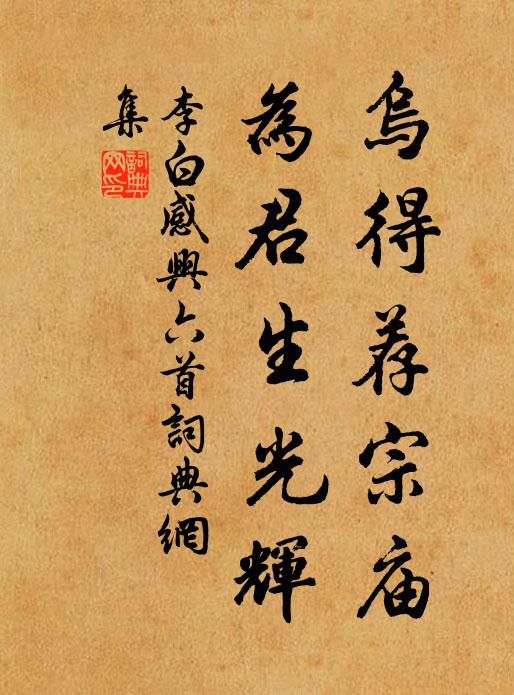 烏得荐宗庙
為君生光輝
李白感興六首詞典網
集
詞典
网印